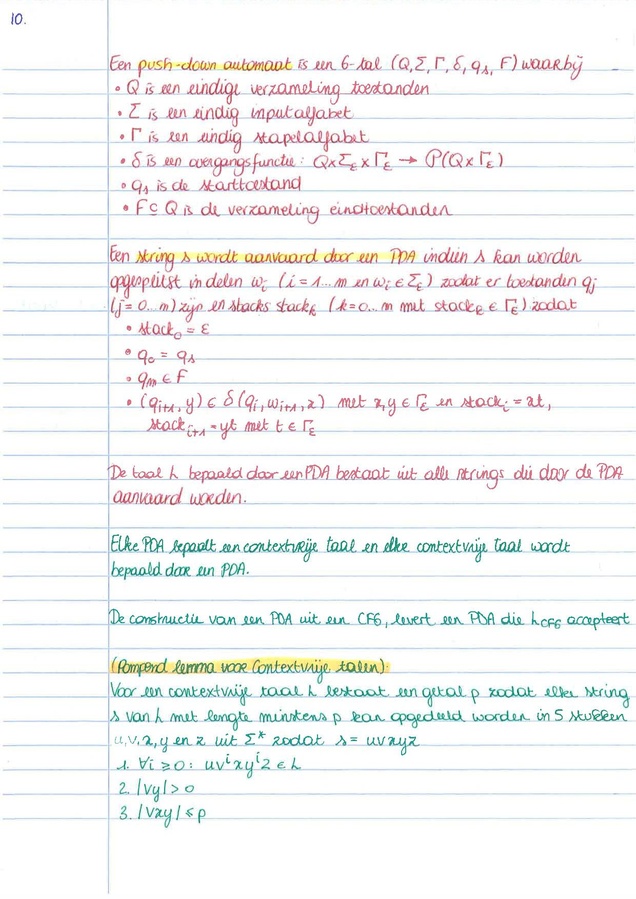 10.
Een push-down automaat is een 6-tal (Q, Σ, Γ, δ, qₛ, F) waarbij
• Q is een eindige verzameling toestanden
• Σ is een eindig inputalfabet
• Γ is een eindig stapelalfabet
• δ is een overgangsfunctie: Q×Σ_ε×Γ_ε → P(Q×Γ_ε)
• qₛ is de starttoestand
• F ⊆ Q is de verzameling eindtoestanden
Een string s wordt aanvaard door een PDA indien s kan worden
opgesplitst in delen wᵢ (i = 1...m en wᵢ ∈ Σ_ε) zodat er toestanden qⱼ
(j = 0...m) zijn en stacks stackₖ (k = 0...m met stackₖ ∈ Γ_ε) zodat
• stack₀ = ε
• q₀ = qₛ
• qₘ ∈ F
• (qᵢ₊₁, y) ∈ δ(qᵢ, wᵢ₊₁, x) met x, y ∈ Γ_ε en stackᵢ = xt,
stackᵢ₊₁ = yt met t ∈ Γ_ε
De taal L bepaald door een PDA bestaat uit alle strings die door de PDA
aanvaard worden.
Elke PDA bepaalt een contextvrije taal en elke contextvrije taal wordt
bepaald door een PDA.
De constructie van een PDA uit een CFG, levert een PDA die L_CFG accepteert
(Pompend lemma voor Contextvrije talen):
Voor een contextvrije taal L bestaat een getal p zodat elke string
s van L met lengte minstens p kan opgedeeld worden in 5 stukken
u, v, x, y en z uit Σ* zodat s = uvxyz
1. ∀i ≥ 0: uvⁱxyⁱz ∈ L
2. |vy| > 0
3. |vxy| ≤ p